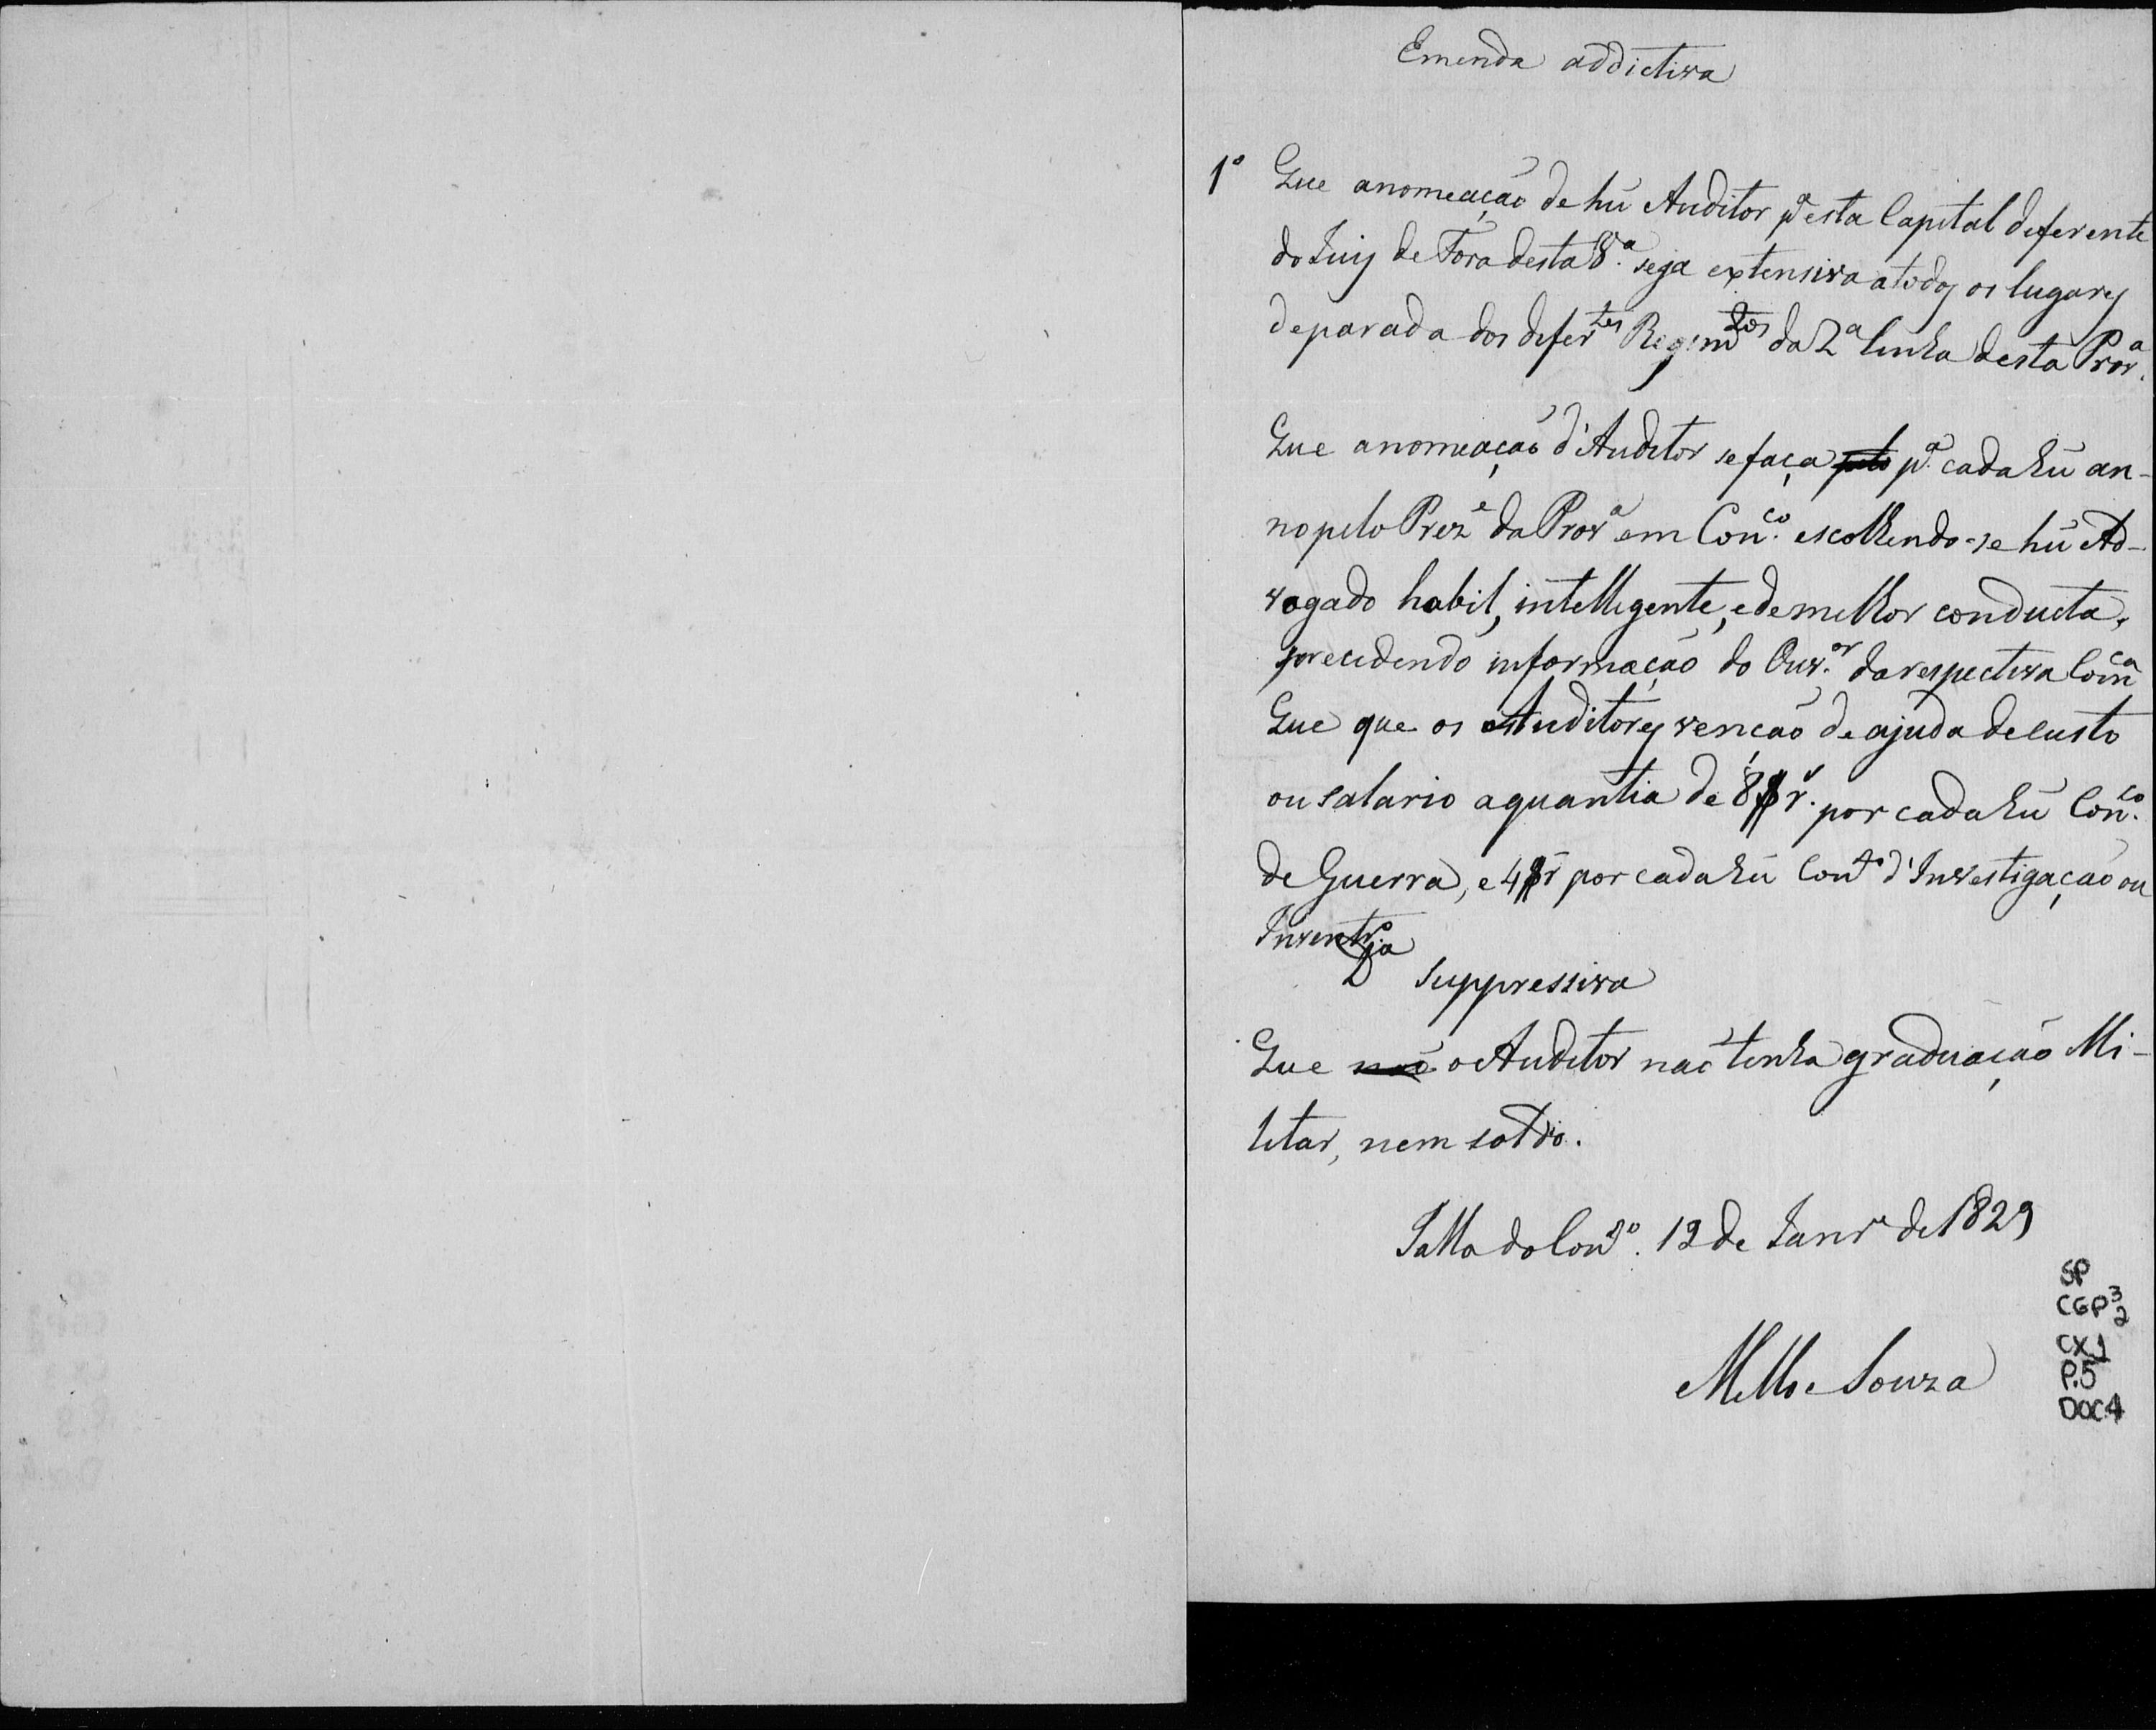 Emenda addictiva
1º Que anomeação de hũ Auditor pª esta Capital deferente
do Juiz de Fora desta Cª. seja extensiva atodos os lugares
deparada dos defertes Regimtos da 2ª linha desta Provª.
Que anomeação d'Auditor sefaça pelo pª. cadahũ an-
no pelo Preze da Provª em Conco. escolhendo-se hũ Ad-
vogado habil, intelligente, edemelhor conducta,
precedendo informação do Ouvor. darespectiva Comca
Que que os Auditores venção de ajuda decusto
ou salario aquantia de 8$r. por cadahũ Conco.
de Guerra, e 4$r por cadahũ Conco d'Investigação ou
Inventro
Da Suppressiva
Que não o Auditor não tenha graduação Mi-
litar, nem soldo.
Salla do Conco. 12 de Janro de 1829
Mello e Souza
SP
CGP3
2
CX1
P.5
DOC4